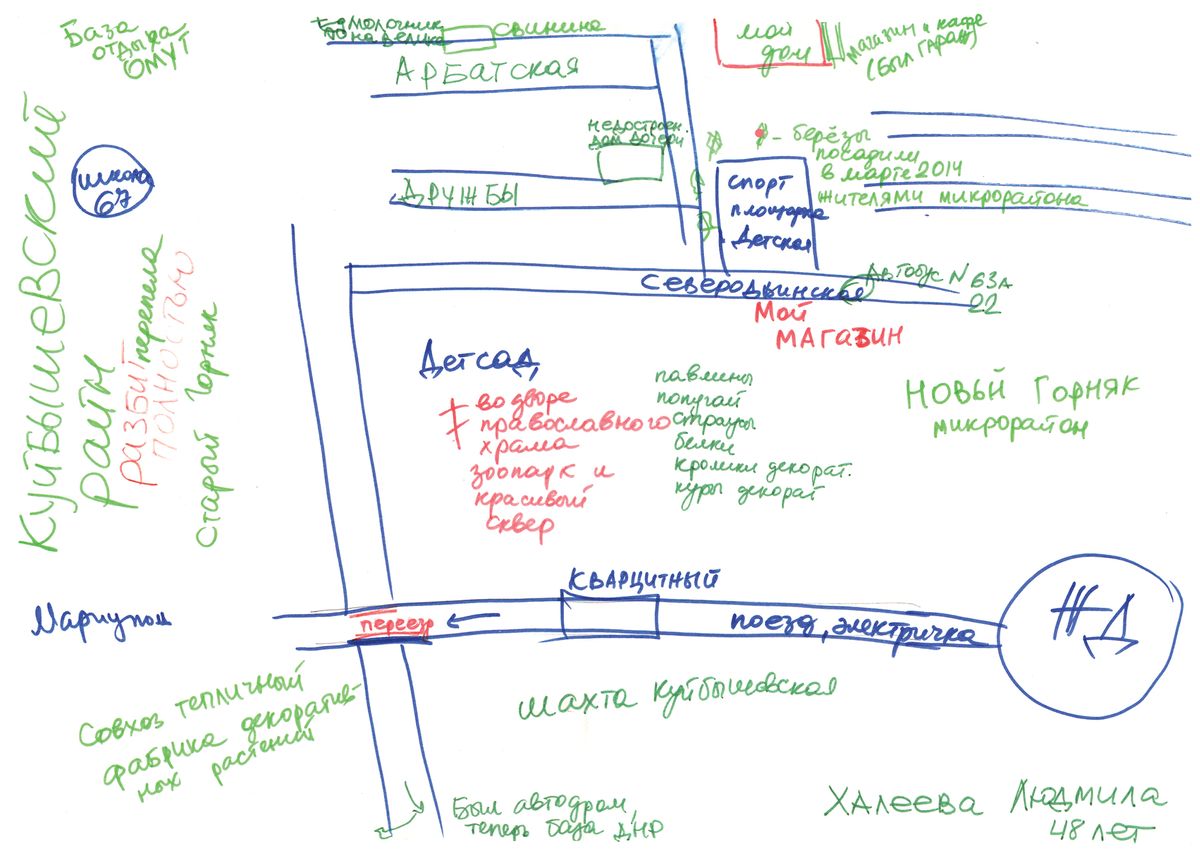 База
отдыха
ОМУТ
т-д молочник
по на велике
свинина
АРБАТСКАЯ
мой
дом
магазин и кафе
(был гараж)
КУЙБЫШЕВСКИЙ
РАЙОН
школа
67
недостроен.
дом дочери
ДРУЖБЫ
- берёзы
посадили
в марте 2014
жителями микрорайона
спорт
площадка
Детская
Северодвинская
Автобус N 63А
22
Мой
МАГАЗИН
РАЗБИТ
ПОЛНОСТЬЮ
Старый Горняк
Детсад,
во дворе
православного
храма
зоопарк и
красивый
сквер
павлины
попугай
страусы
белки
кролики декорат.
куры декорат
НОВЫЙ ГОРНЯК
микрорайон
Мариуполь
переезд
КВАРЦИТНЫЙ
поезд, электричка
Ж-Д
шахта Куйбышевская
Совхоз тепличный
фабрика декоратив-
ных растений
Был автодром,
теперь база ДНР
ХАЛЕЕВА ЛЮДМИЛА
48 лет